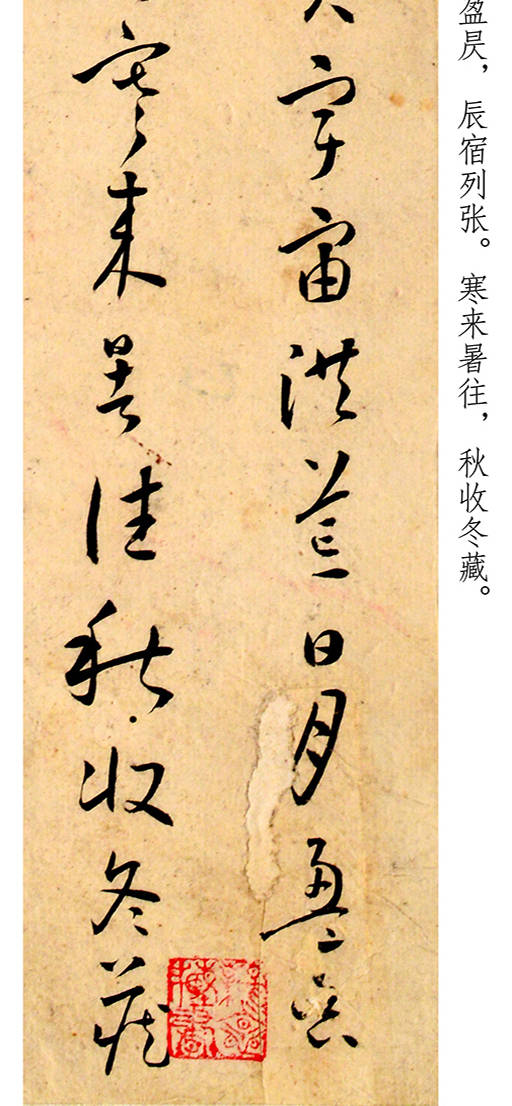 盈昃，辰宿列张。寒来暑往，秋收冬藏。
宇宙洪荒日月盈昃
寒来暑往秋收冬藏